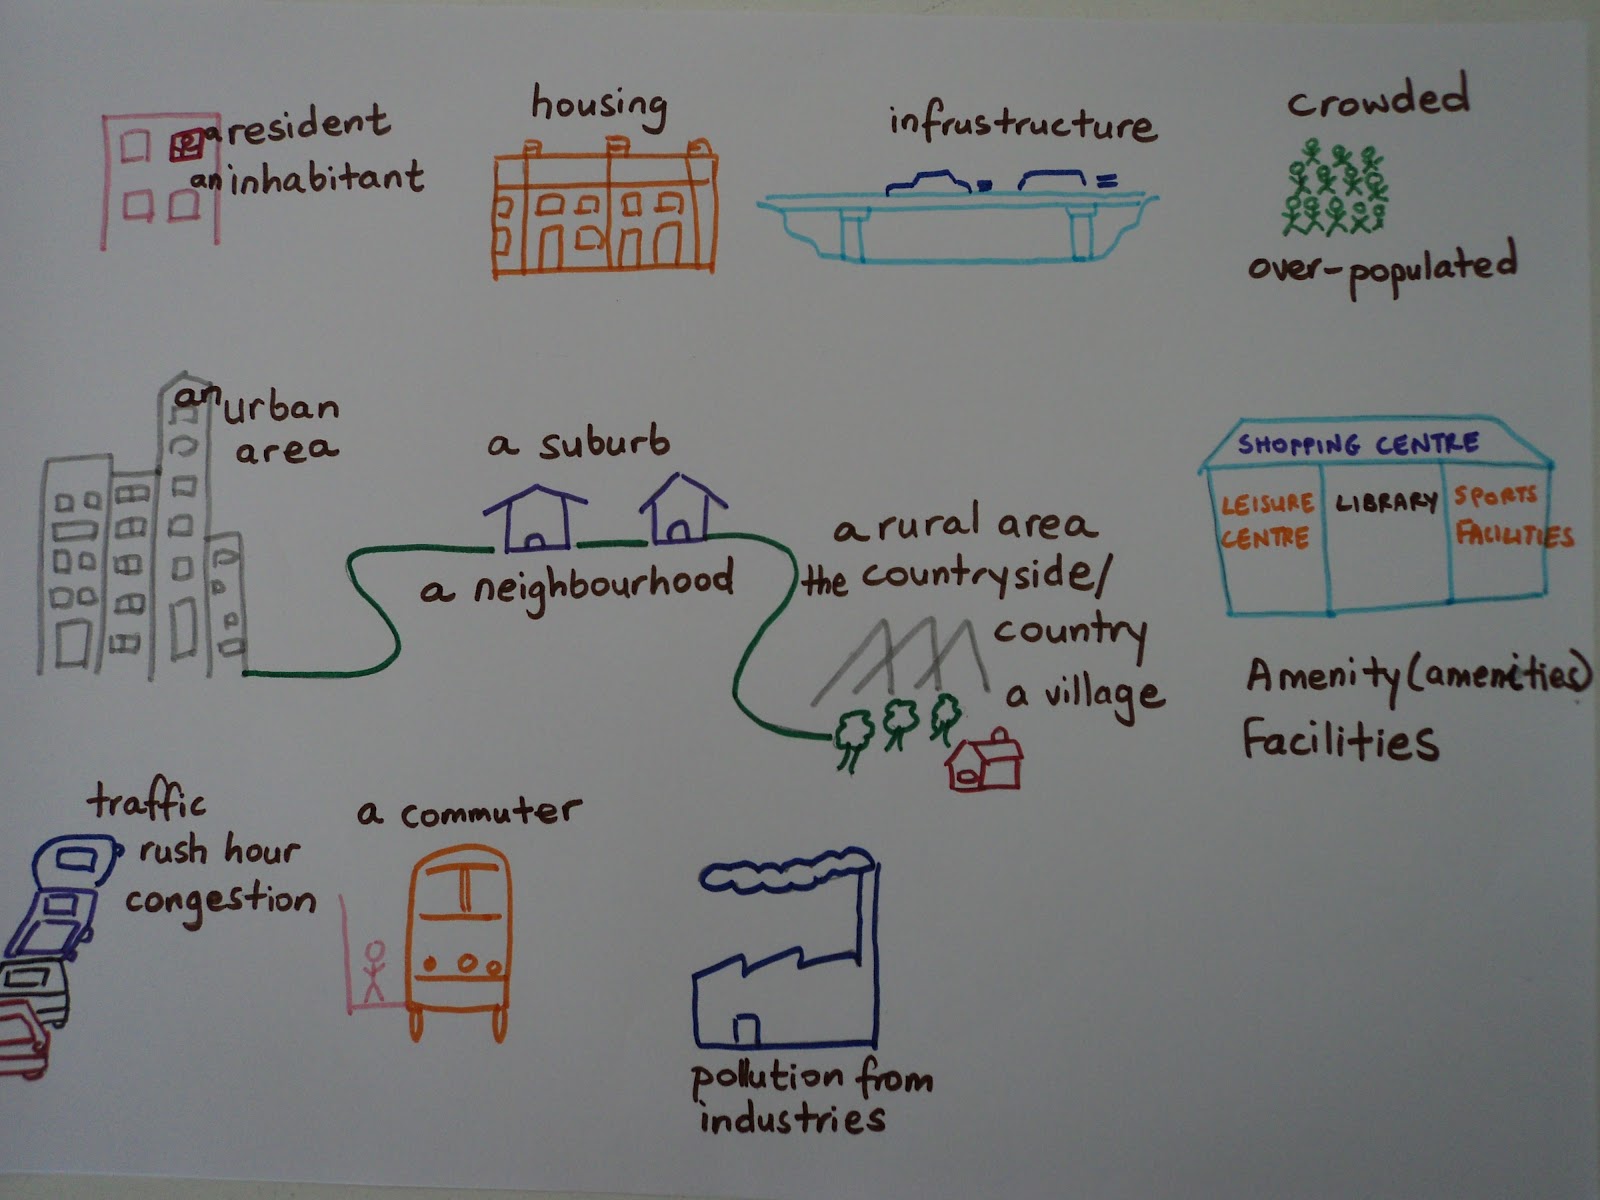 a resident
an inhabitant
housing
infrustructure
crowded
over-populated
an urban
area
a suburb
a neighbourhood
a rural area
the countryside/
country
a village
SHOPPING CENTRE
LEISURE
CENTRE
LIBRARY
SPORTS
FACILITIES
Amenity (amenities)
Facilities
traffic
rush hour
congestion
a commuter
pollution from
industries